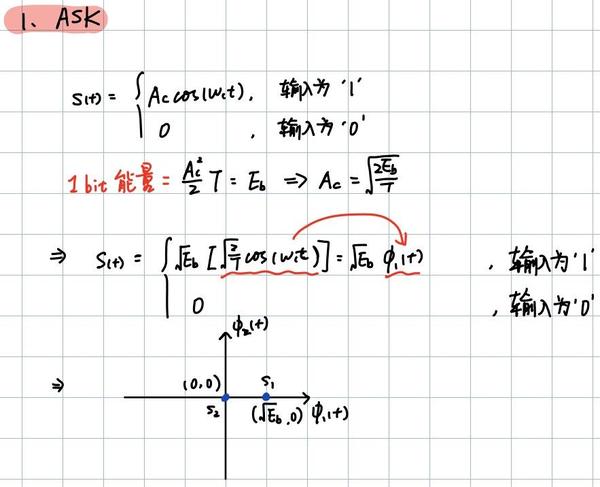 1、ASK
S(t) = { Ac cos(ωct), 输入为 '1'
0 , 输入为 '0'
1 bit 能量 = Ac²/2 T = Eb ⇒ Ac = √(2Eb/T)
⇒ S(t) = { √Eb [√(2/T) cos(ωct)] = √Eb ϕ₁(t) , 输入为 '1'
0 , 输入为 '0'
ϕ₂(t)
⇒
(0,0) S₁
S₂ (√Eb, 0) ϕ₁(t)